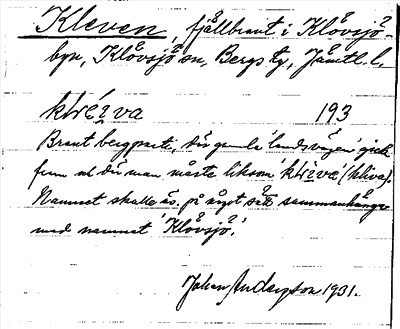 Kleven, fjällbrant i Klövsjö
byn, Klövsjö sn, Bergs tg, Jämtl. l.
193
Brant bergparti, där gamla landsvägen gick
fram och där man måste liksom (kliva).
Namnet skulle äv. på något sätt sammanhänga
med namnet 'Klövsjö'.
Johan Anderzson 1931.